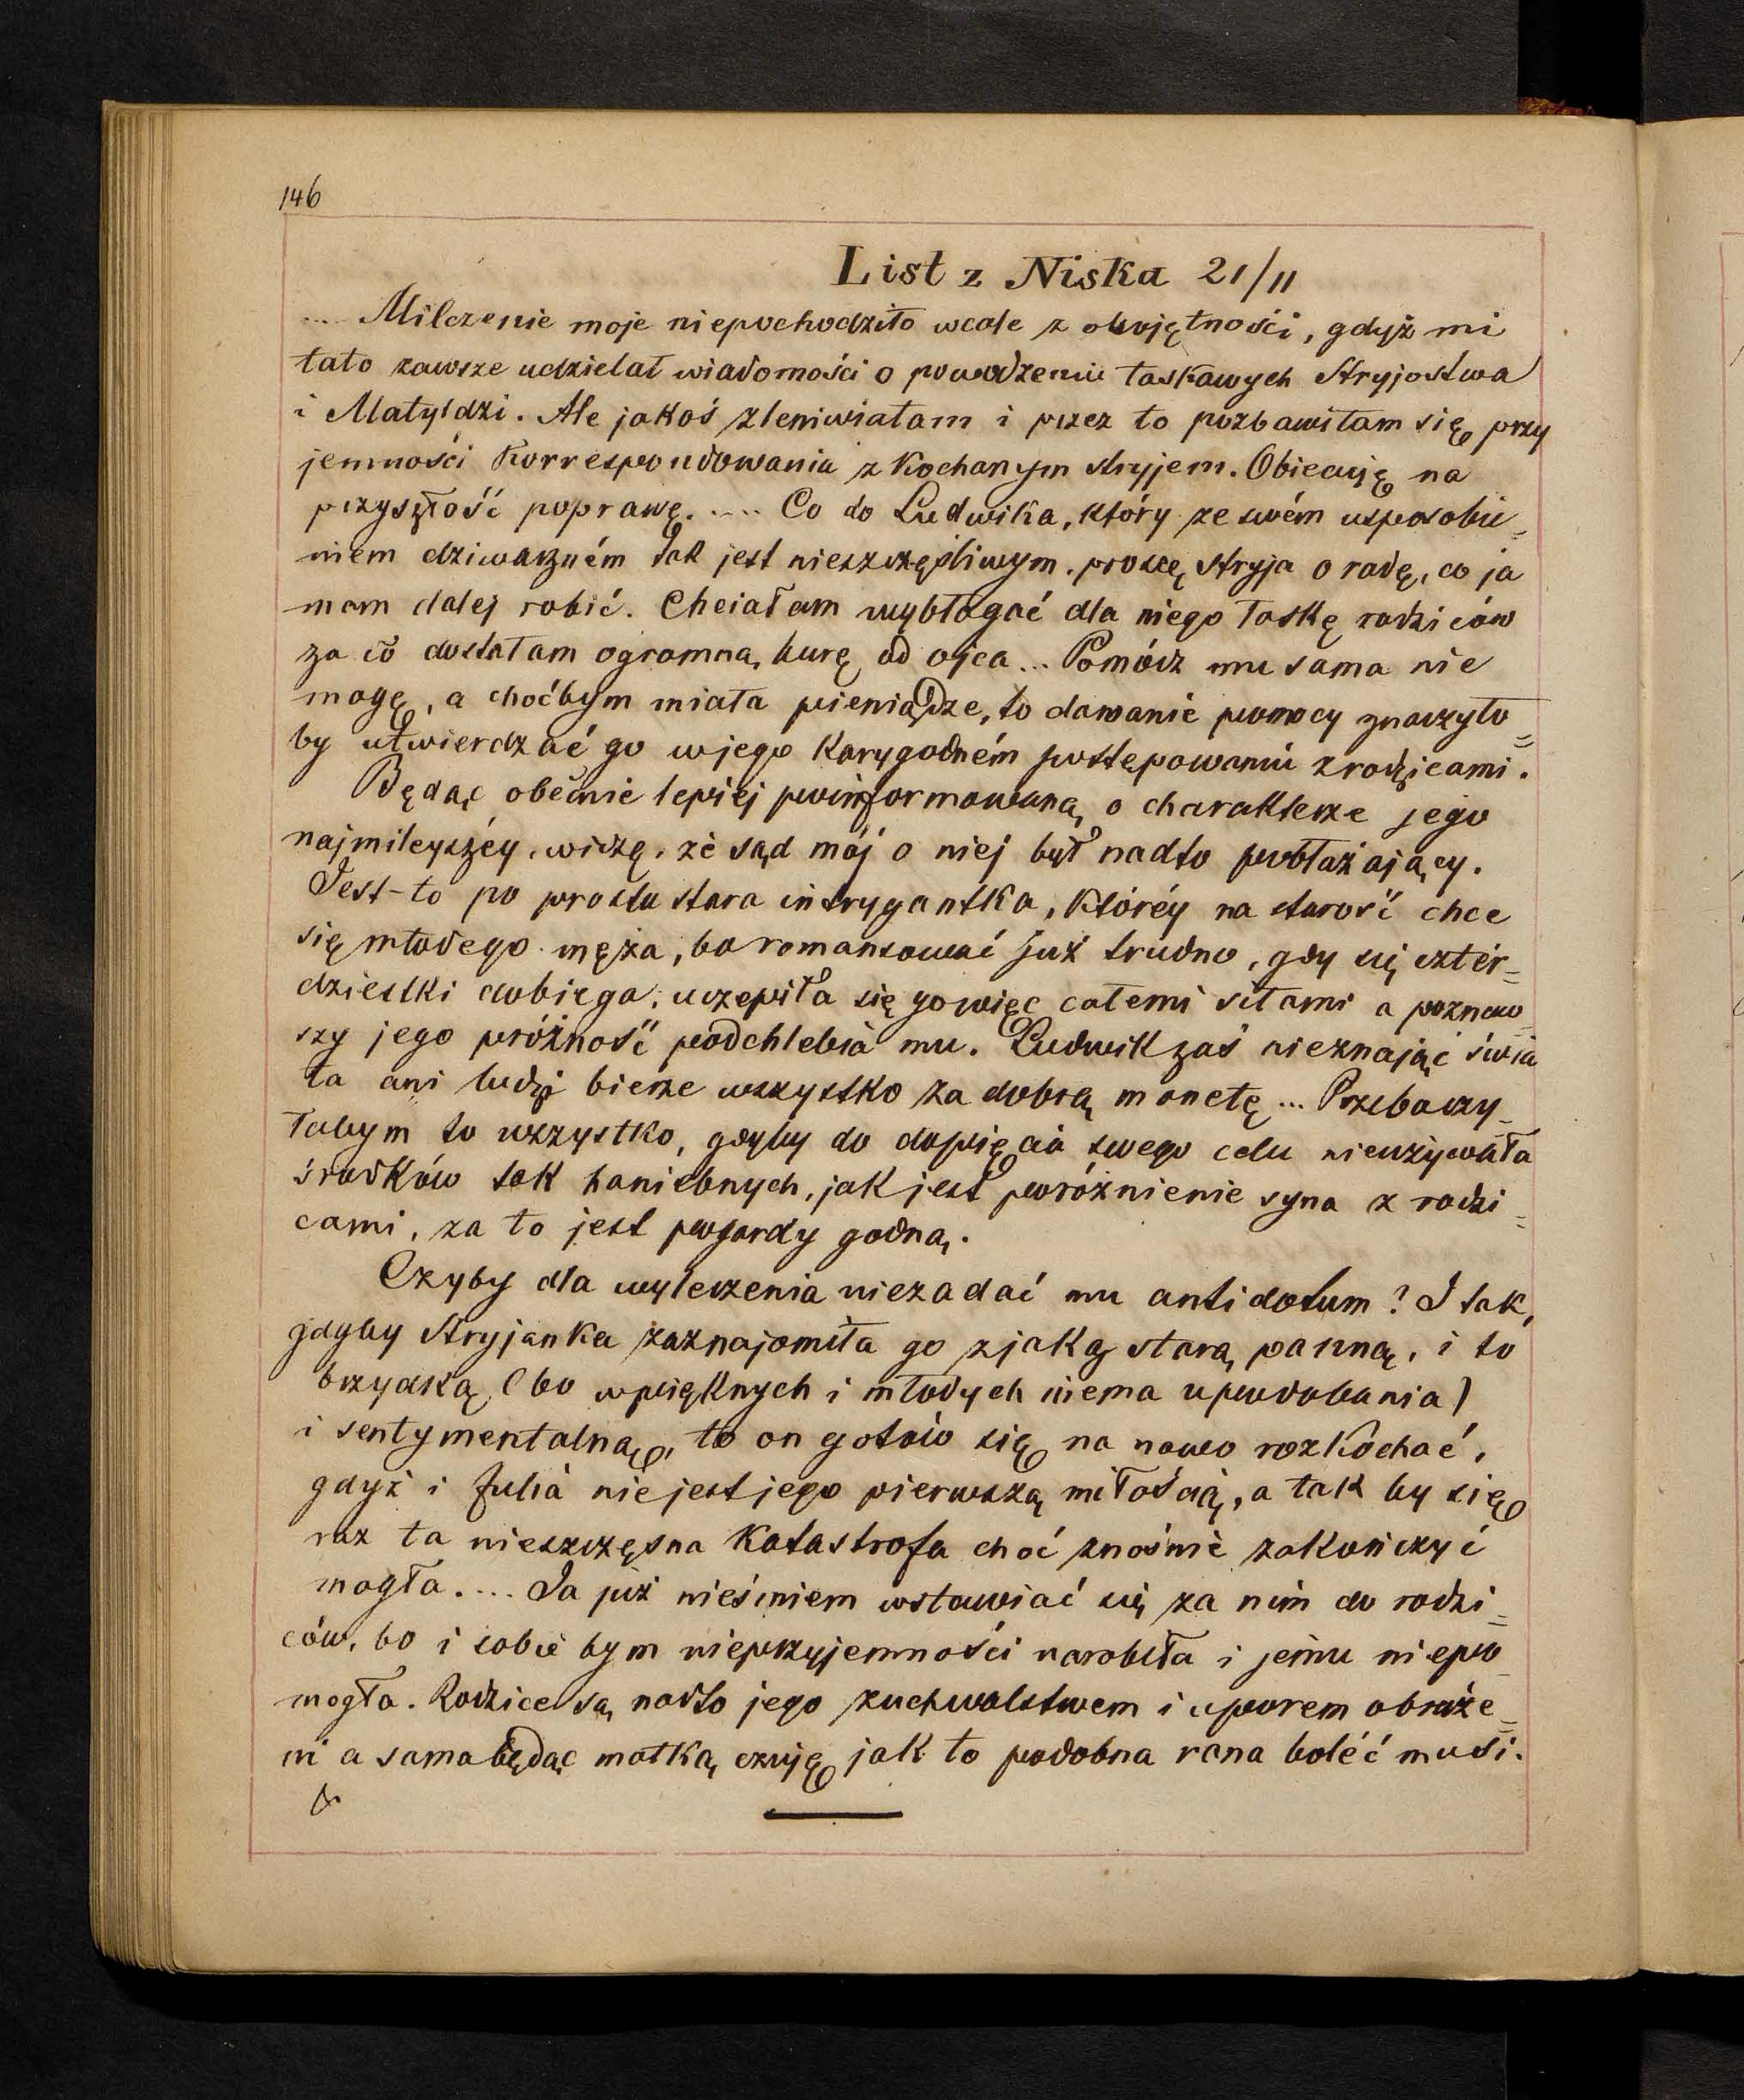 146
List z Niska 21/11
... Milczenie moje niepochodziło wcale z obojętności, gdyż mi
tato zawsze udzielał wiadomości o powodzeniu łaskawych Stryjostwa
i Matyldzi. Ale jakoś zleniwiałam i przez to pozbawiłam się przy
jemności Korrespondowania z Kochanym stryjem. Obiecuję na
przyszłość poprawę. .... Co do Ludwika, który ze swém usposobie=
niem dziwaczném tak jest nieszczęśliwym. proszę Stryja o radę, co ja
mam dalej robić. Chciałam wybłagać dla niego łaskę rodziców
za co dostałam ogromną burę od ojca... Pomódz mu sama nie
mogę, a choćbym miała pieniądze, to dawanie pomocy znaczyło=
by utwierdzać go w jego Karygodném postępowaniu z rodzicami.
Będąc obecnie lepiej poinformowaną o charakterze jego
najmilejszéy, widzę, że sąd mój o niej był nadto pobłażający.
Jest-to po prostu stara intrygantka, któréy na starość chce
się młodego męża, bo romansować już trudno, gdy się czter=
dziestki dobiega; uczepiła się go więc całemi siłami a poznaw=
szy jego próżność podchlebia mu. Ludwik zaś nieznając świa
ta ani ludzi bierze wszystko za dobrą monetę... Przebaczy=
łabym to wszystko, gdyby do dopięcia swego celu nieużywała
środków tak haniebnych, jak jest poróżnienie syna z rodzi=
cami, za to jest pogardy godną.
Czyby dla wyleczenia niezadać mu antidotum? I tak,
gdyby Stryjanka zaznajomiła go z jaką starą panną, i to
brzydką (bo w pięknych i młodych niema upodobania)
i sentymentalną, to on gotów się na nowo rozkochać,
gdyż i Julia nie jest jego pierwszą miłością, a tak by się
raz ta nieszczęsna Katastrofa choć znośnie zakończyć
mogła. ... Ja już nieśmiem wstawiać się za nim do rodzi=
ców, bo i sobie bym nieprzyjemności narobiła i jemu niepo
mogła. Rodzice są nadto jego zuchwalstwem i uporem obraże=
ni a sama będąc matką czuję jak to podobna rana boléć musi.